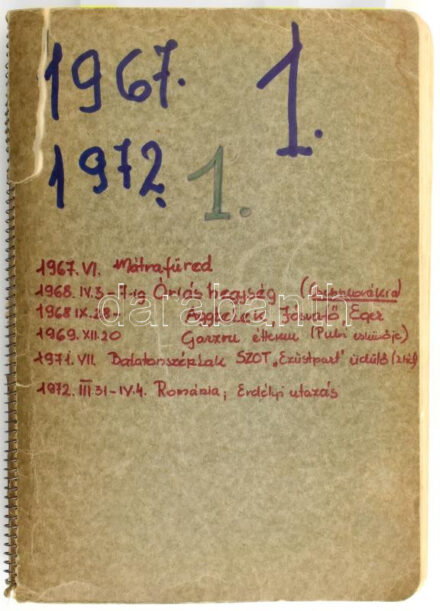 1967. 1.
1972. 1.
1967. VI. Mátrafüred
1968. IV.3-7-ig Óriás hegység (Csehszlovákia)
1968 IX.28- Aggtelek, Jósvafő, Eger
1969. XII.20 étterem (Putyi esküvője)
1971. VII. Balatonszéplak SZOT „Ezüstpart" üdülő
1972. III 31-IV.4. Románia; Erdélyi utazás
darabanth